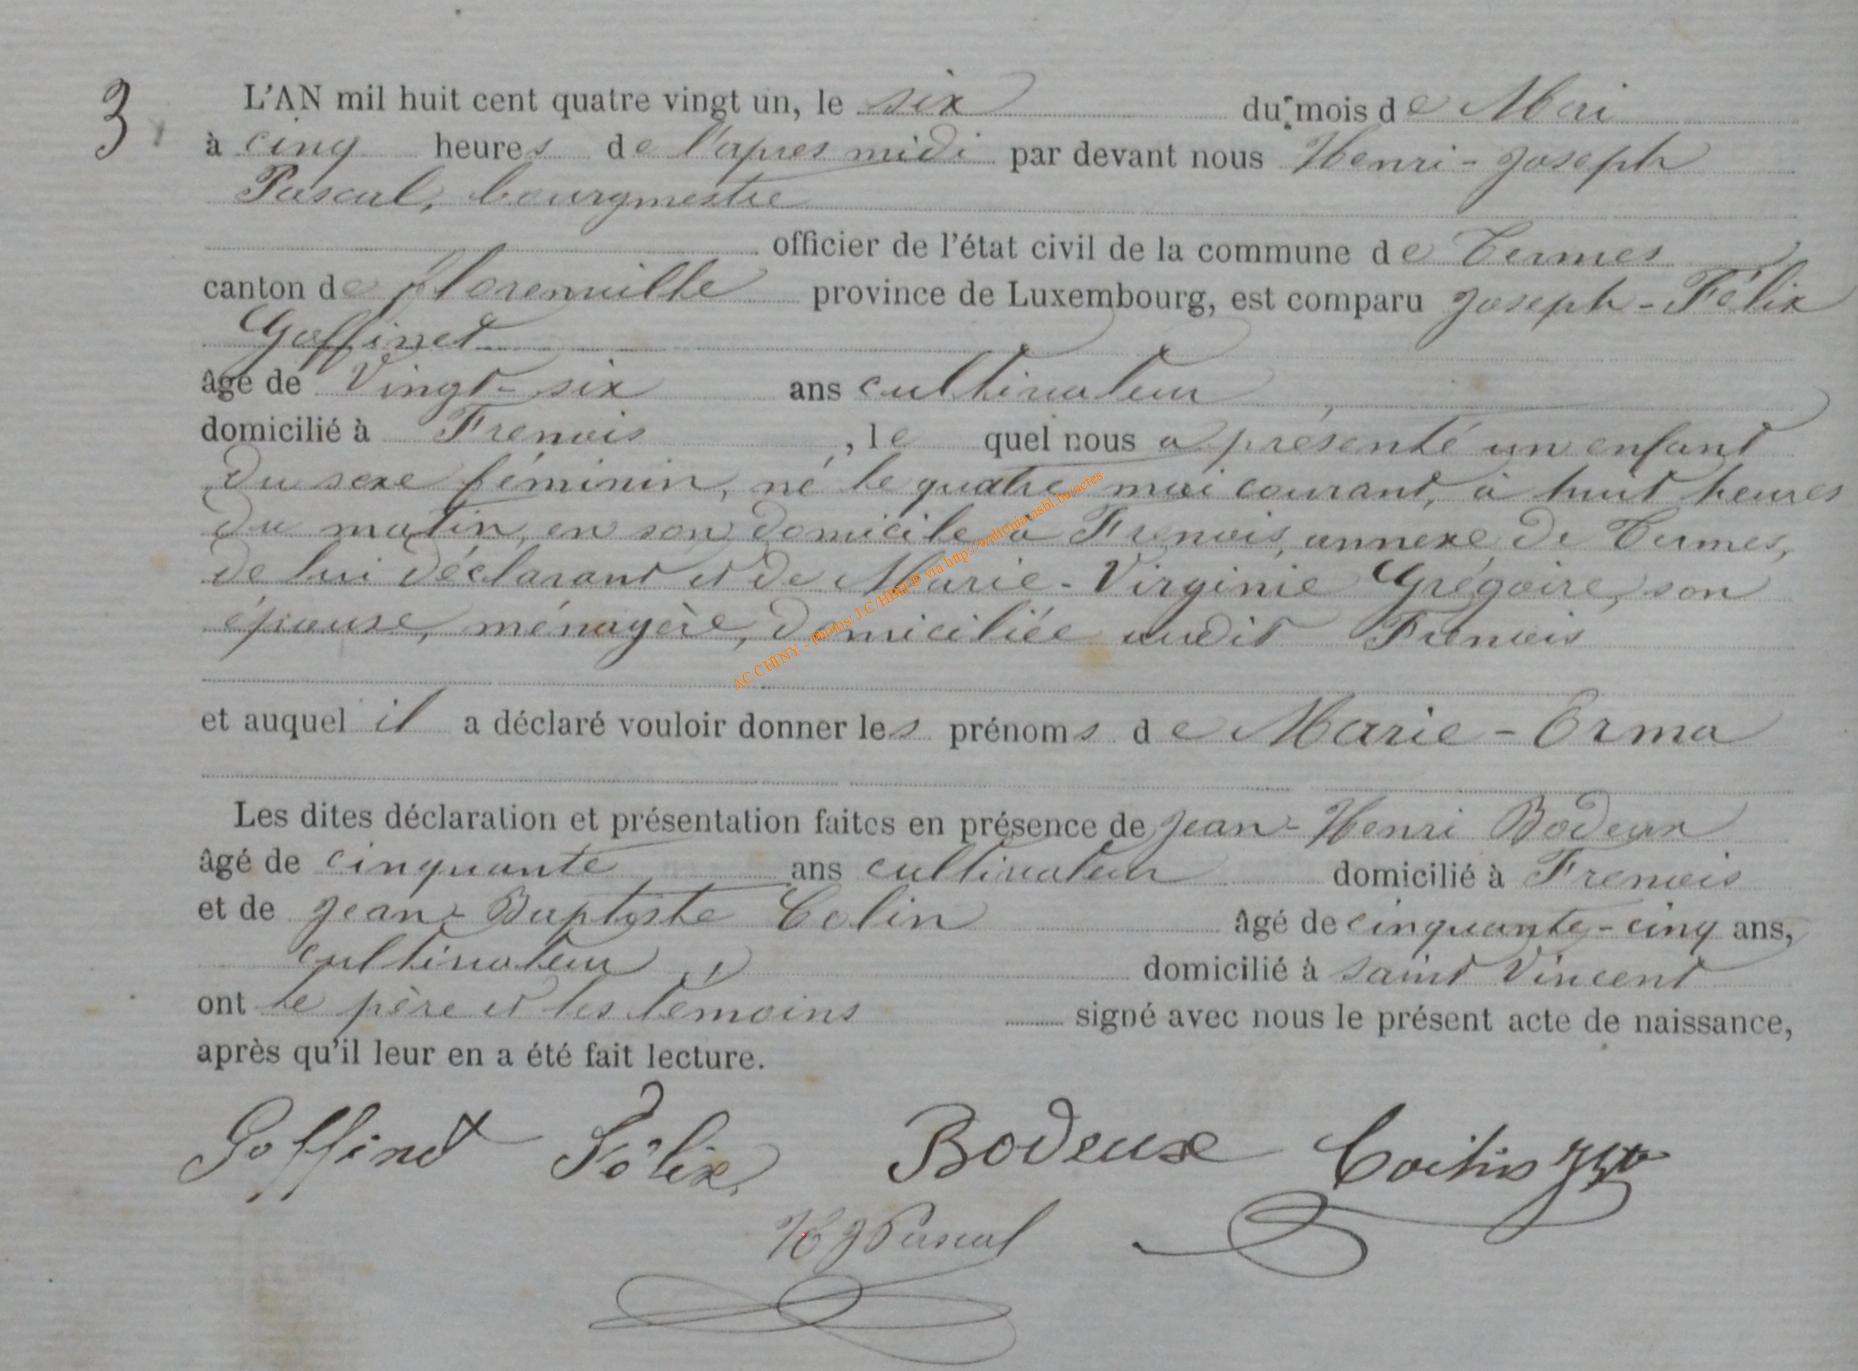 3
L'AN mil huit cent quatre vingt un, le six du mois de Mai
à cinq heures de l'apres midi par devant nous Henri-Joseph
Pascal, bourgmestre
officier de l'état civil de la commune de Termes
canton de florenville province de Luxembourg, est comparu Joseph-Félix
Goffinet
âgé de Vingt-six ans cultivateur
domicilié à Frenois, le quel nous a présenté un enfant
du sexe féminin, né le quatre mai courant, à huit heures
du matin, en son domicile à Frenois, annexe de Termes,
de lui déclarant et de Marie-Virginie Grégoire, son
épouse, ménagère, domiciliée audit Frenois
et auquel il a déclaré vouloir donner les prénoms de Marie-Erma
Les dites déclaration et présentation faites en présence de Jean-Henri Bodeux
âgé de cinquante ans cultivateur domicilié à Frenois
et de Jean-Baptiste Colin âgé de cinquante-cinq ans,
cultivateur, domicilié à Saint Vincent
ont le père et les témoins signé avec nous le présent acte de naissance,
après qu'il leur en a été fait lecture.
Goffinet Félix Bodeux
HJ Pascal
AC CHINY - Photos: J.C. HBH © via http://walloniasbl.be/actes